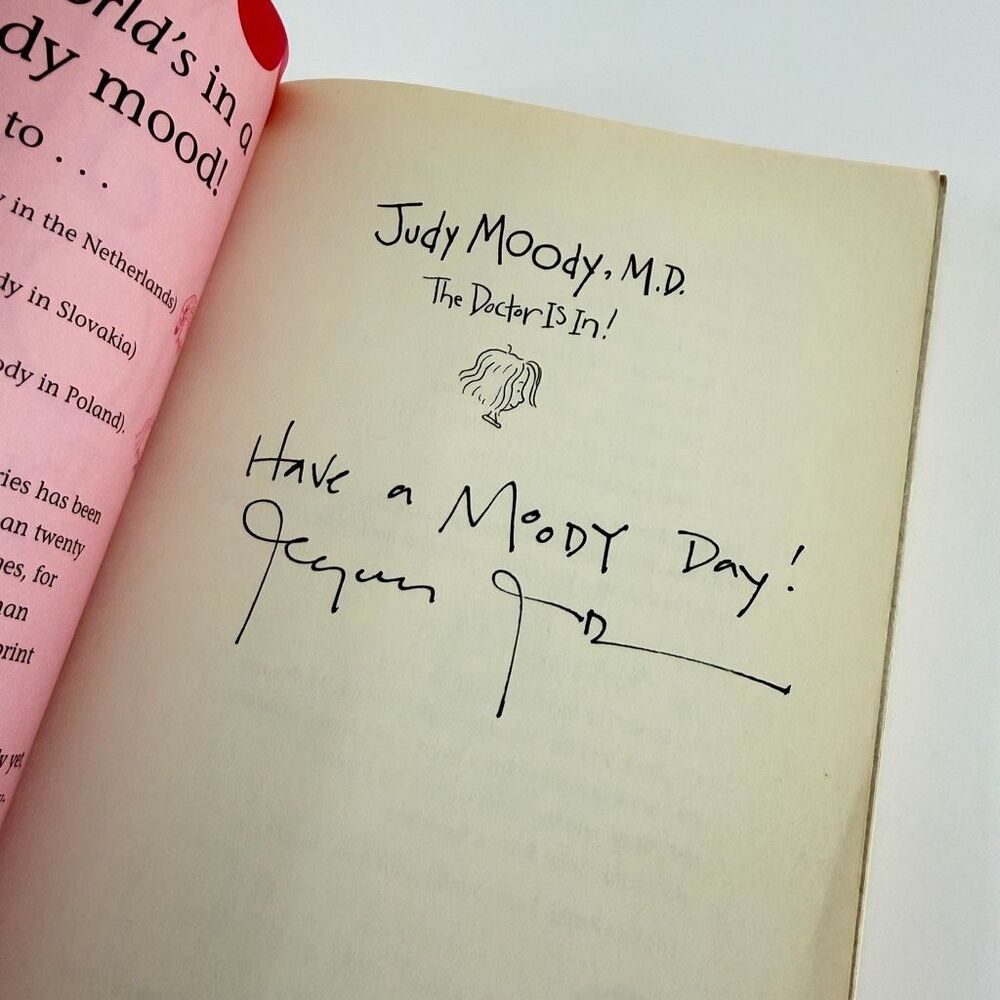 orld's in a
dy mood!
to . . .
y in the Netherlands)
dy in Slovakia)
ody in Poland).
ries has been
an twenty
nes, for
an
print
y yet
Judy Moody, M.D.
The Doctor Is In!
Have a Moody Day!